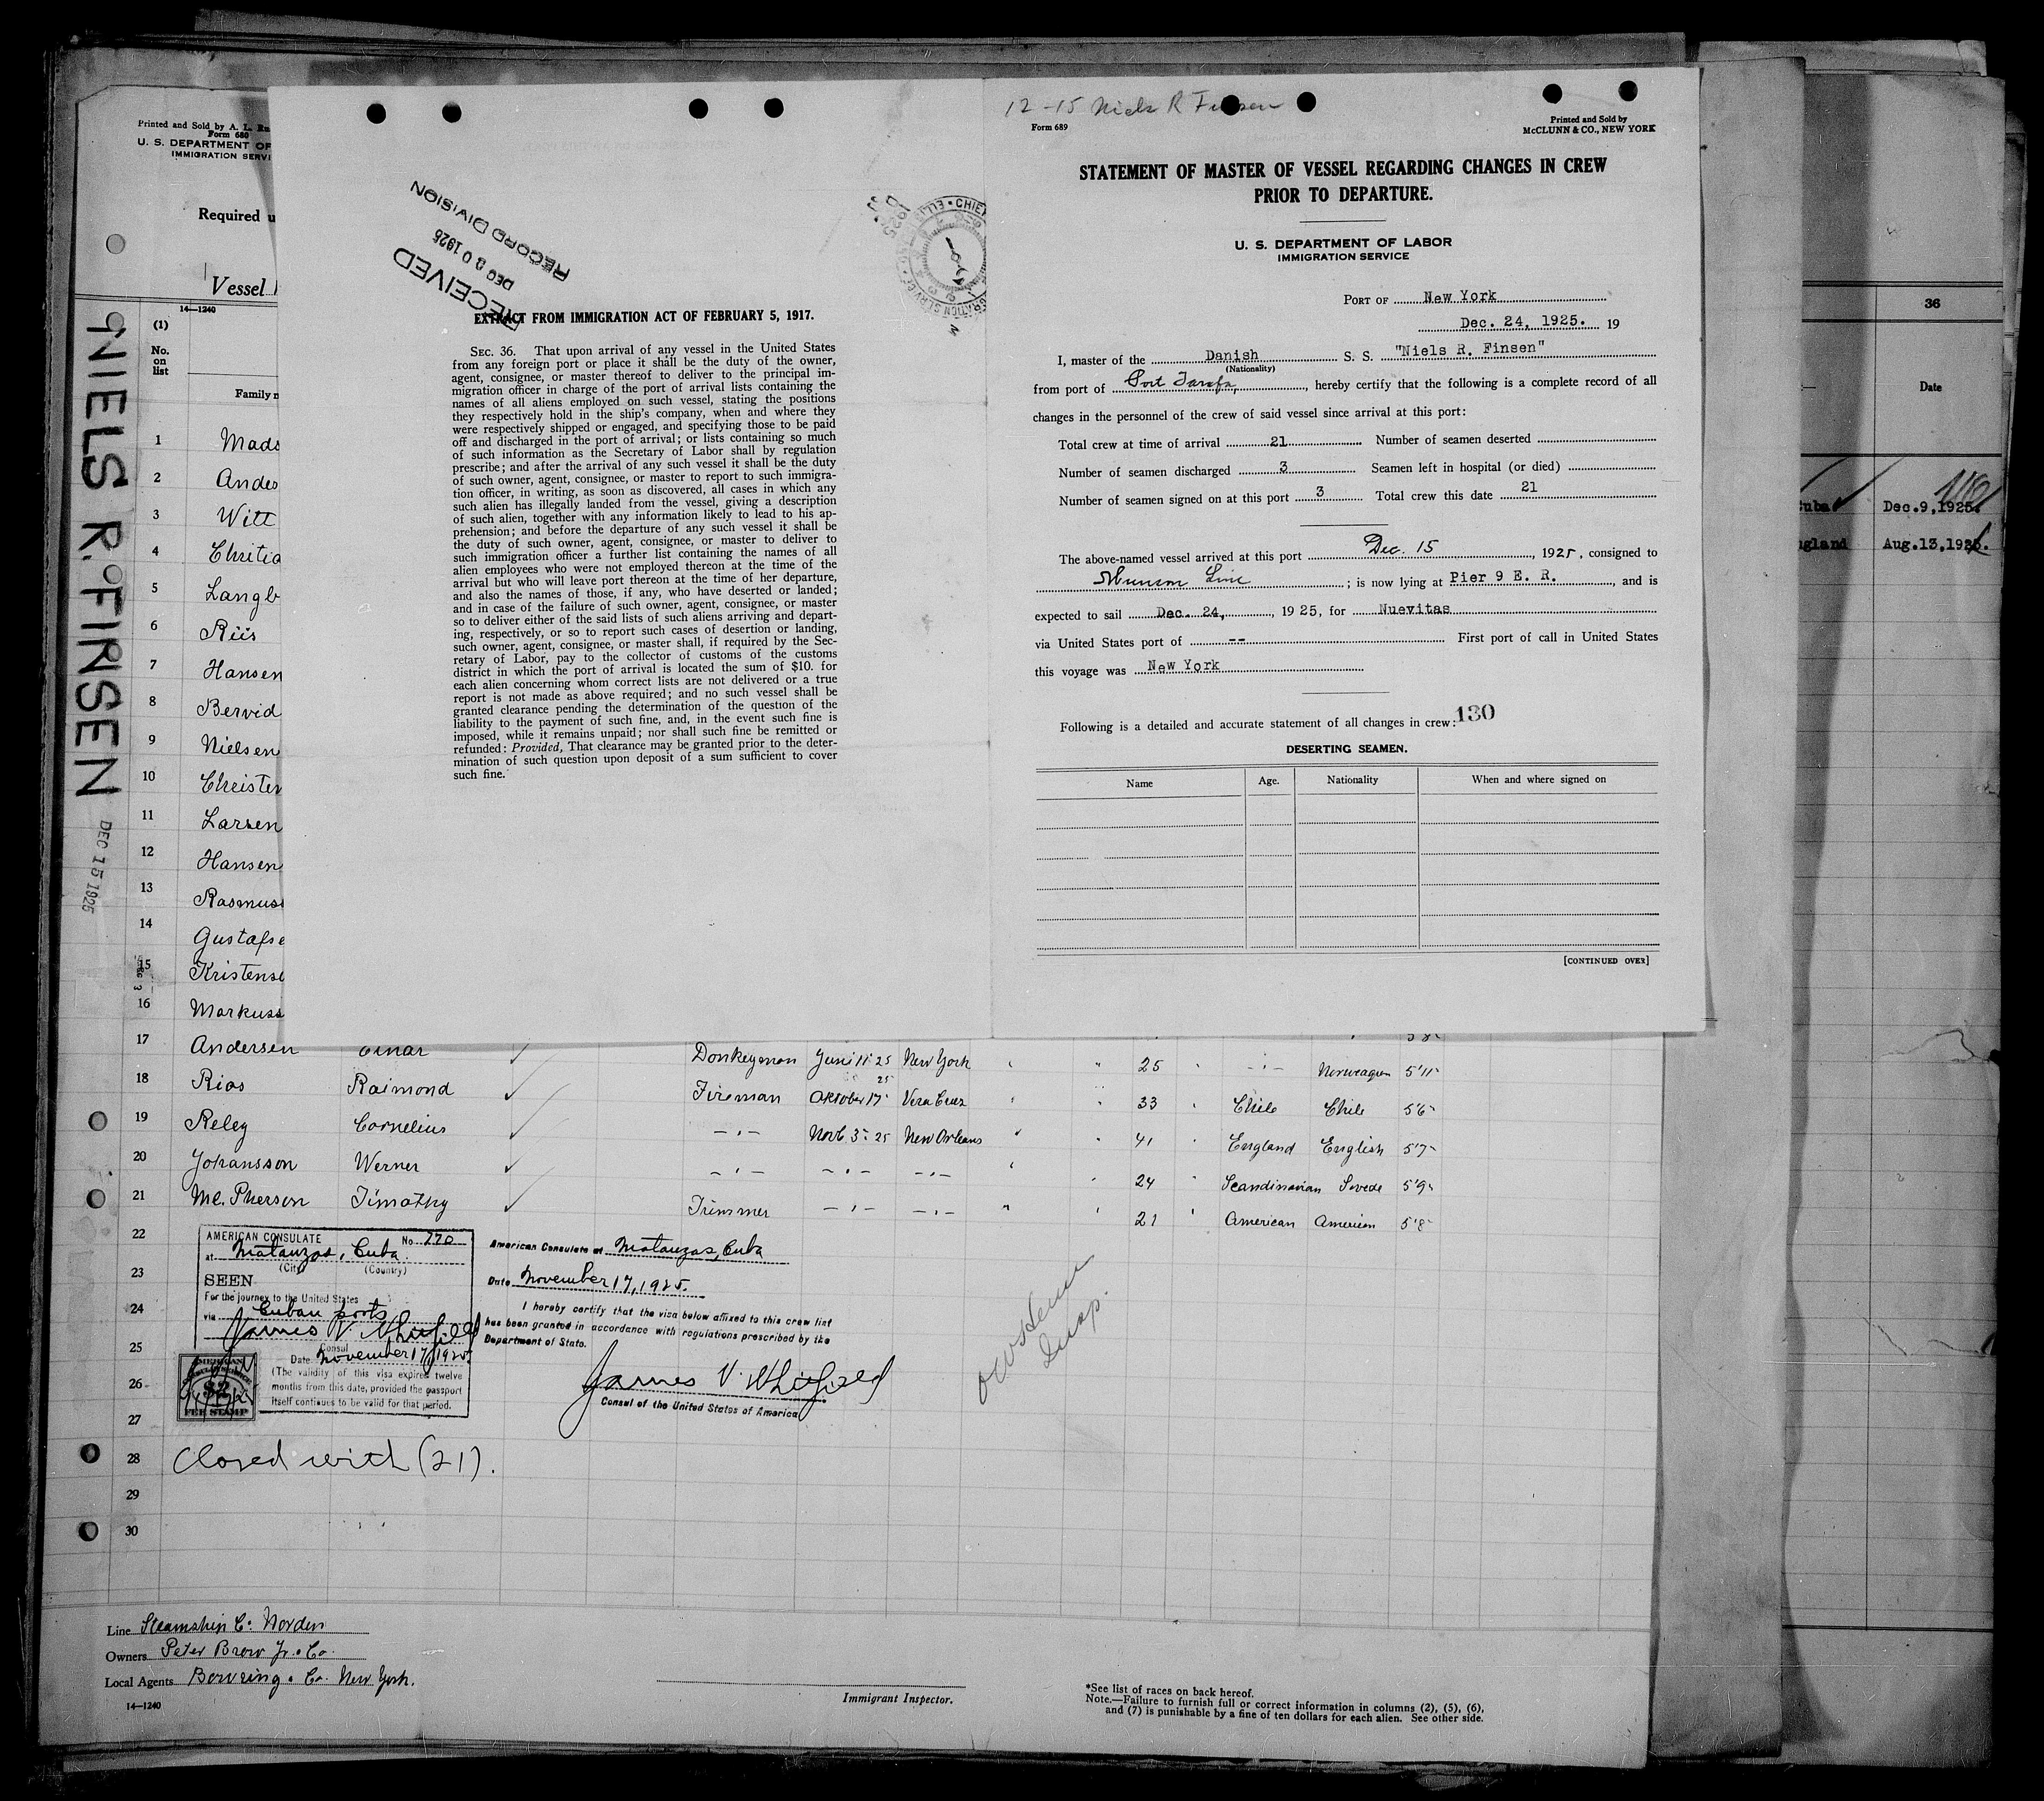 Printed and Sold by A. L. Ru
Form 680
U. S. DEPARTMENT OF
IMMIGRATION SERVI
Required u
Vessel
14—1240
(1)
No.
on
list
Family n
NIELS R. FINSEN
DEC 15 1925
1 Mads
2 Andes
3 Witt
4 Chritia
5 Langb
6 Riis
7 Hansen
8 Bervid
9 Nielsen
10 Christen
11 Larsen
12 Hansen
13 Rasmuss
14 Gustafse
15 Kristense
16 Markuss
RECEIVED
DEC 30 1925
RECORD DIVISION
EXTRACT FROM IMMIGRATION ACT OF FEBRUARY 5, 1917.
SEC. 36. That upon arrival of any vessel in the United States
from any foreign port or place it shall be the duty of the owner,
agent, consignee, or master thereof to deliver to the principal im-
migration officer in charge of the port of arrival lists containing the
names of all aliens employed on such vessel, stating the positions
they respectively hold in the ship's company, when and where they
were respectively shipped or engaged, and specifying those to be paid
off and discharged in the port of arrival; or lists containing so much
of such information as the Secretary of Labor shall by regulation
prescribe; and after the arrival of any such vessel it shall be the duty
of such owner, agent, consignee, or master to report to such immigra-
tion officer, in writing, as soon as discovered, all cases in which any
such alien has illegally landed from the vessel, giving a description
of such alien, together with any information likely to lead to his ap-
prehension; and before the departure of any such vessel it shall be
the duty of such owner, agent, consignee, or master to deliver to
such immigration officer a further list containing the names of all
alien employees who were not employed thereon at the time of the
arrival but who will leave port thereon at the time of her departure,
and also the names of those, if any, who have deserted or landed;
and in case of the failure of such owner, agent, consignee, or master
so to deliver either of the said lists of such aliens arriving and depart-
ing, respectively, or so to report such cases of desertion or landing,
such owner, agent, consignee, or master shall, if required by the Sec-
retary of Labor, pay to the collector of customs of the customs
district in which the port of arrival is located the sum of $10. for
each alien concerning whom correct lists are not delivered or a true
report is not made as above required; and no such vessel shall be
granted clearance pending the determination of the question of the
liability to the payment of such fine, and, in the event such fine is
imposed, while it remains unpaid; nor shall such fine be remitted or
refunded: Provided, That clearance may be granted prior to the deter-
mination of such question upon deposit of a sum sufficient to cover
such fine.
12-15 Niels R Finsen
Form 689
Printed and Sold by
McCLUNN & CO., NEW YORK
STATEMENT OF MASTER OF VESSEL REGARDING CHANGES IN CREW
PRIOR TO DEPARTURE.
U. S. DEPARTMENT OF LABOR
IMMIGRATION SERVICE
PORT OF New York
Dec. 24, 1925. 19
I, master of the Danish S. S. "Niels R. Finsen"
(Nationality)
from port of Port Tarafa, hereby certify that the following is a complete record of all
changes in the personnel of the crew of said vessel since arrival at this port:
Total crew at time of arrival 21 Number of seamen deserted
Number of seamen discharged 3 Seamen left in hospital (or died)
Number of seamen signed on at this port 3 Total crew this date 21
The above-named vessel arrived at this port Dec. 15, 1925, consigned to
Munson Line; is now lying at Pier 9 E. R., and is
expected to sail Dec. 24, 1925, for Nuevitas
via United States port of -- First port of call in United States
this voyage was New York
Following is a detailed and accurate statement of all changes in crew: 130
DESERTING SEAMEN.
Name Age. Nationality When and where signed on
[CONTINUED OVER]
36
Date
Cuba Dec.9,1925.
ngland Aug.13,1925.
17 Andersen Einar Donkeyman Juni 11 25 New York 25 -"- Norweagen 5'11"
18 Rios Raimond Fireman Oktober 17 25 Vera Cruz 33 Chile Chile 5'6"
19 Reley Cornelius -"- Novb 3 25 New Orleans 41 England English 5'7"
20 Johansson Werner -"- -"- -"- 24 Scandinavian Svede 5'9"
21 Mc. Pherson Timothy Trimmer -"- -"- 21 American American 5'8"
22
23
24
25
26
27
AMERICAN CONSULATE No. 770
at Matanzas, Cuba.
(City) (Country)
SEEN
For the journey to the United States
via Cuban ports
James V. Whitfield
Consul
Date November 17, 1925.
(The validity of this visa expires twelve
months from this date, provided the passport
itself continues to be valid for that period.
AMERICAN
$2
FEE STAMP
American Consulate at Matanzas, Cuba
Date November 17, 1925.
I hereby certify that the visa below affixed to this crew list
has been granted in accordance with regulations prescribed by the
Department of State.
James V. Whitfield
Consul of the United States of America
28 Closed with (21).
29
30
Line Steamship Co. Norden
Owners Peter Brow Jr. & Co.
Local Agents Bowring & Co. New York.
14—1240
Immigrant Inspector.
*See list of races on back hereof.
Note.—Failure to furnish full or correct information in columns (2), (5), (6),
and (7) is punishable by a fine of ten dollars for each alien. See other side.